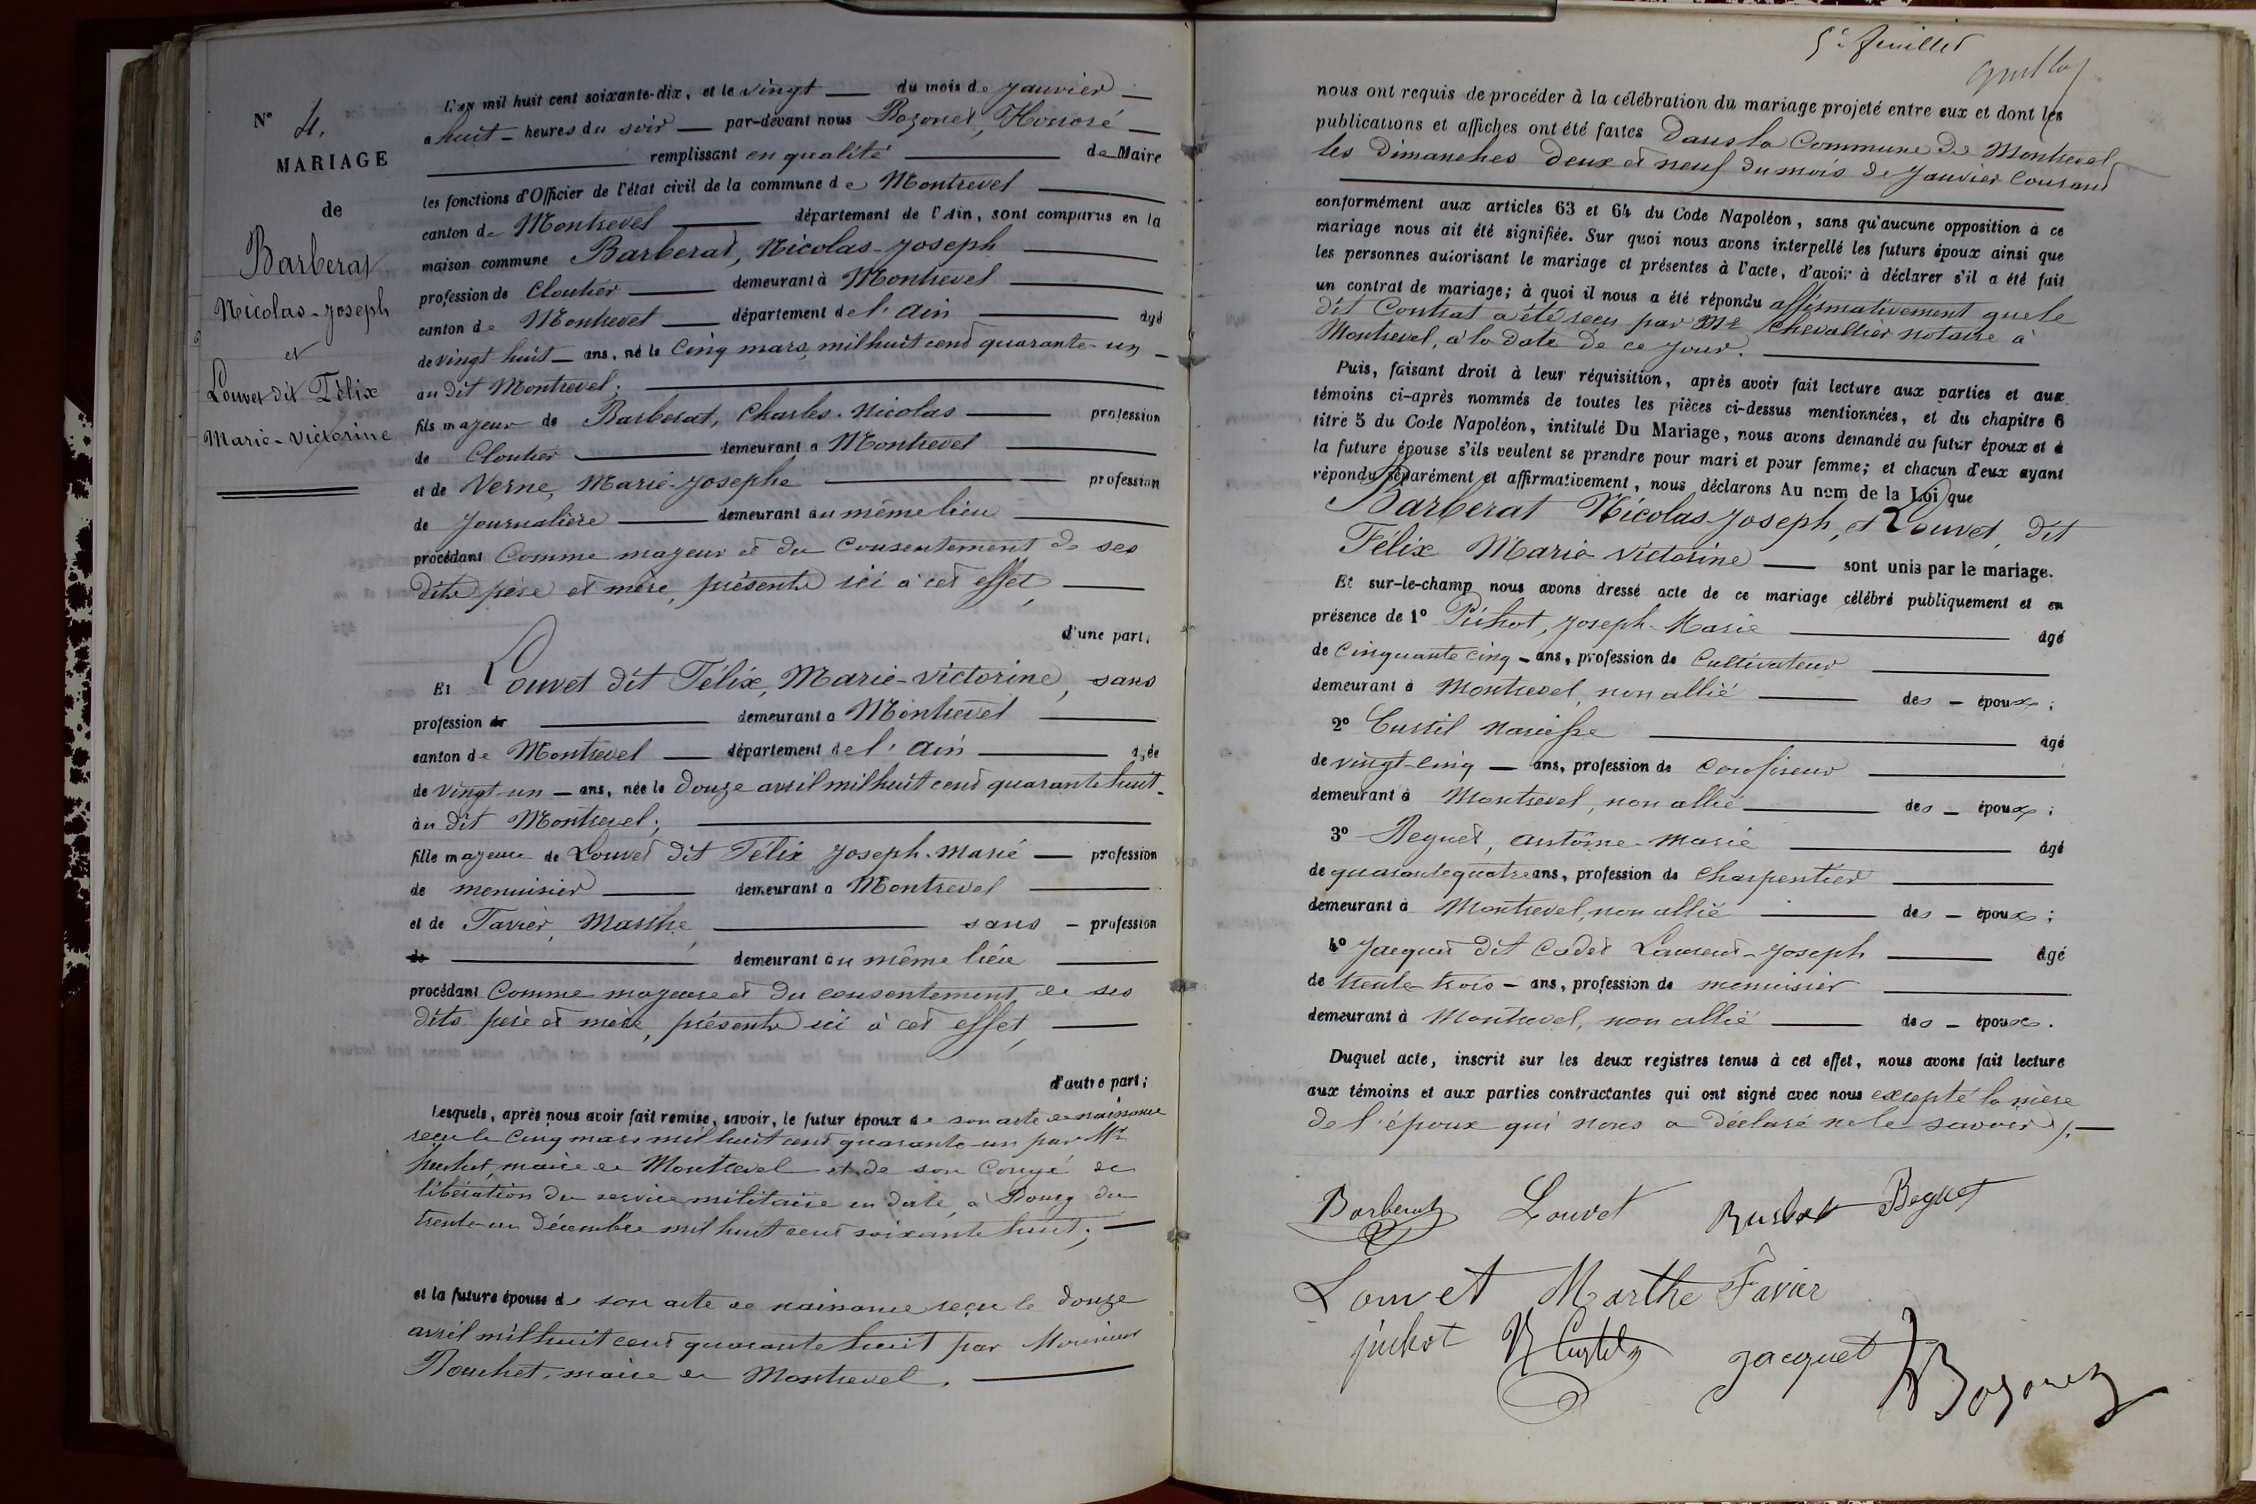 N° 4.
MARIAGE
de
Barberat
Nicolas-Joseph
et
Louvet dit Félix
Marie-Victorine
L'an mil huit cent soixante-dix, et le vingt du mois de Janvier
a huit heures du soir par-devant nous Bozonet, Honoré
remplissant en qualité de Maire
les fonctions d'Officier de l'état civil de la commune de Montrevel
canton de Montrevel département de l'Ain, sont comparus en la
maison commune Barberat, Nicolas-Joseph
profession de Cloutier demeurant à Montrevel
canton de Montrevel département de l'Ain âgé
de vingt huit ans, né le Cinq mars, mil huit cent quarante-un
au dit Montrevel;
fils majeur de Barberat, Charles-Nicolas profession
de Cloutier demeurant a Montrevel
et de Verne, Marie-Josephe profession
de Journalière demeurant au même lieu
procédant Comme majeur et du Consentement de ses
dits père et mère, présents ici à cet effet,
d'une part.
Et Louvet dit Félix, Marie-Victorine, sans
profession de demeurant a Montrevel
canton de Montrevel département de l'Ain agée
de vingt-un ans, née le douze avril mil huit cent quarante huit
au dit Montrevel;
fille majeure de Louvet dit Félix Joseph-Marie profession
de menuisier demeurant a Montrevel
et de Favier, Marthe, sans profession
de demeurant au même lieu
procédant Comme majeure et du consentement de ses
dits père et mère, présents ici à cet effet,
d'autre part;
Lesquels, après nous avoir fait remise, savoir, le futur époux de son acte de naissance
reçu le Cinq mars mil huit cent quarante-un par Mr
maire de Montrevel et de son Congé de
libération du service militaire en date, à Bourg du
trente-un décembre mil huit cent soixante huit;
et la future épouse de son acte de naissance reçu le douze
avril mil huit cent quarante huit par Monsieur
Bouchet, maire de Montrevel.
5e feuillet
nous ont requis de procéder à la célébration du mariage projeté entre eux et dont les
publications et affiches ont été faites Dans la Commune de Montrevel,
les Dimanches deux et neuf du mois de Janvier Courant
conformément aux articles 63 et 64 du Code Napoléon, sans qu'aucune opposition à ce
mariage nous ait été signifiée. Sur quoi nous avons interpellé les futurs époux ainsi que
les personnes autorisant le mariage et présentes à l'acte, d'avoir à déclarer s'il a été fait
un contrat de mariage; à quoi il nous a été répondu affirmativement que le
dit Contrat a été reçu par Me Chevallier notaire à
Montrevel, à la date de ce jour.
Puis, faisant droit à leur réquisition, après avoir fait lecture aux parties et aux
témoins ci-après nommés de toutes les pièces ci-dessus mentionnées, et du chapitre 6
titre 5 du Code Napoléon, intitulé Du Mariage, nous avons demandé au futur époux et à
la future épouse s'ils veulent se prendre pour mari et pour femme; et chacun d'eux ayant
répondu séparément et affirmativement, nous déclarons Au nom de la Loi que
Barberat Nicolas-Joseph, et Louvet, dit
Félix Marie-Victorine sont unis par le mariage.
Et sur-le-champ nous avons dressé acte de ce mariage célébré publiquement et en
présence de 1° Joseph-Marie âgé
de Cinquante cinq ans, profession de Cultivateur
demeurant à Montrevel, non allié des époux;
2° Curtil Narcisse âgé
de vingt-cinq ans, profession de Confiseur
demeurant à Montrevel, non allié des époux;
3° Beguet, Antoine-Marie âgé
de quarante quatre ans, profession de Charpentier
demeurant à Montrevel, non allié des époux;
4° Jacquet dit Cadet Laurent-Joseph âgé
de trente trois ans, profession de menuisier
demeurant à Montrevel, non allié des époux.
Duquel acte, inscrit sur les deux registres tenus à cet effet, nous avons fait lecture
aux témoins et aux parties contractantes qui ont signé avec nous excepté la mère
de l'époux qui nous a déclaré ne le savoir.
Barberat Louvet Beguet
Louvet Marthe Favier
N Curtil Jacquet
H Bozonet